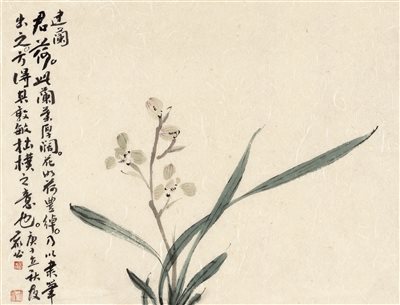 建蘭
君荷。此蘭葉厚闊。花如荷豐綽。乃以柔筆
出之。方得其敦敏拙樸之意也。庚子立秋後